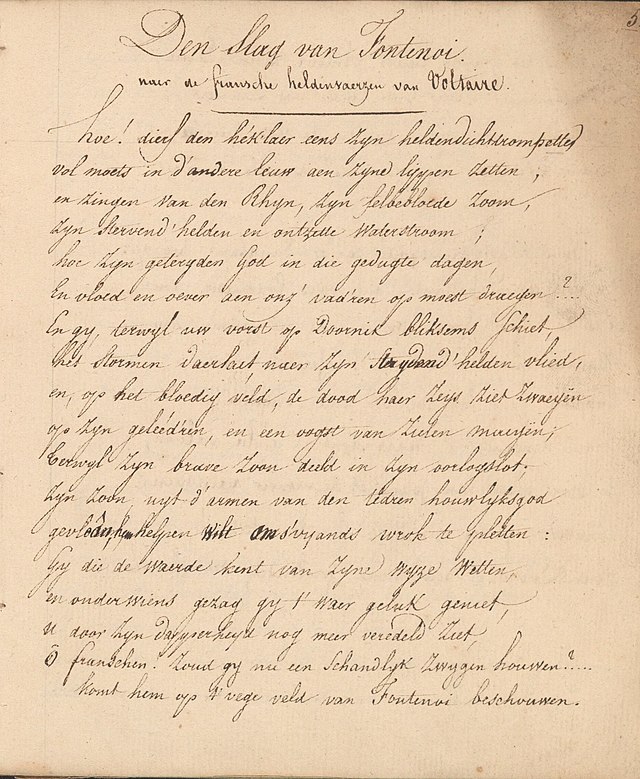 5
Den Slag van Fontenoi.
naer de fransche heldenvaerzen van Voltaire.
hoe! dierf den hék'laer eens zyn heldendichtstrompetted
vol moets in d'andere leuw aen zyne lippen zetten;
en zingen van den Rhyn, zyn felbebloede zoom,
zyn stervend' helden en ontzette waterstroom;
hoe zyn getergden God in die gedugte dagen,
En vloed en oever aen onz' vad'ren op moest draegen?...
En gy, terwyl uw vorst op Doornik bliksems schiet,
het stormen daerlaet, naer zyn strydend' helden vlied,
en, op het bloedig veld, de dood haer zeys ziet zwaeyën
op zyn geleéd'ren, en een oogst van zielen maeyën;
terwyl zyn brave zoon deeld in zyn oorlogslot;
zyn zoon, uyt d'armen van den tedren houwlyksgod
gevloôn, hem helpen wilt om 's vyands wrok te pletten:
Gy die de waerde kent van zyne wyze wetten,
en onder wiens gezag gy 't waer geluk geniet,
u door zyn dapperheyd nog meer veredeld ziet,
ô franschen! zoud gy nu een schandlyk zwygen houwen?....
komt hem op 't vege veld van Fontenoi beschouwen.